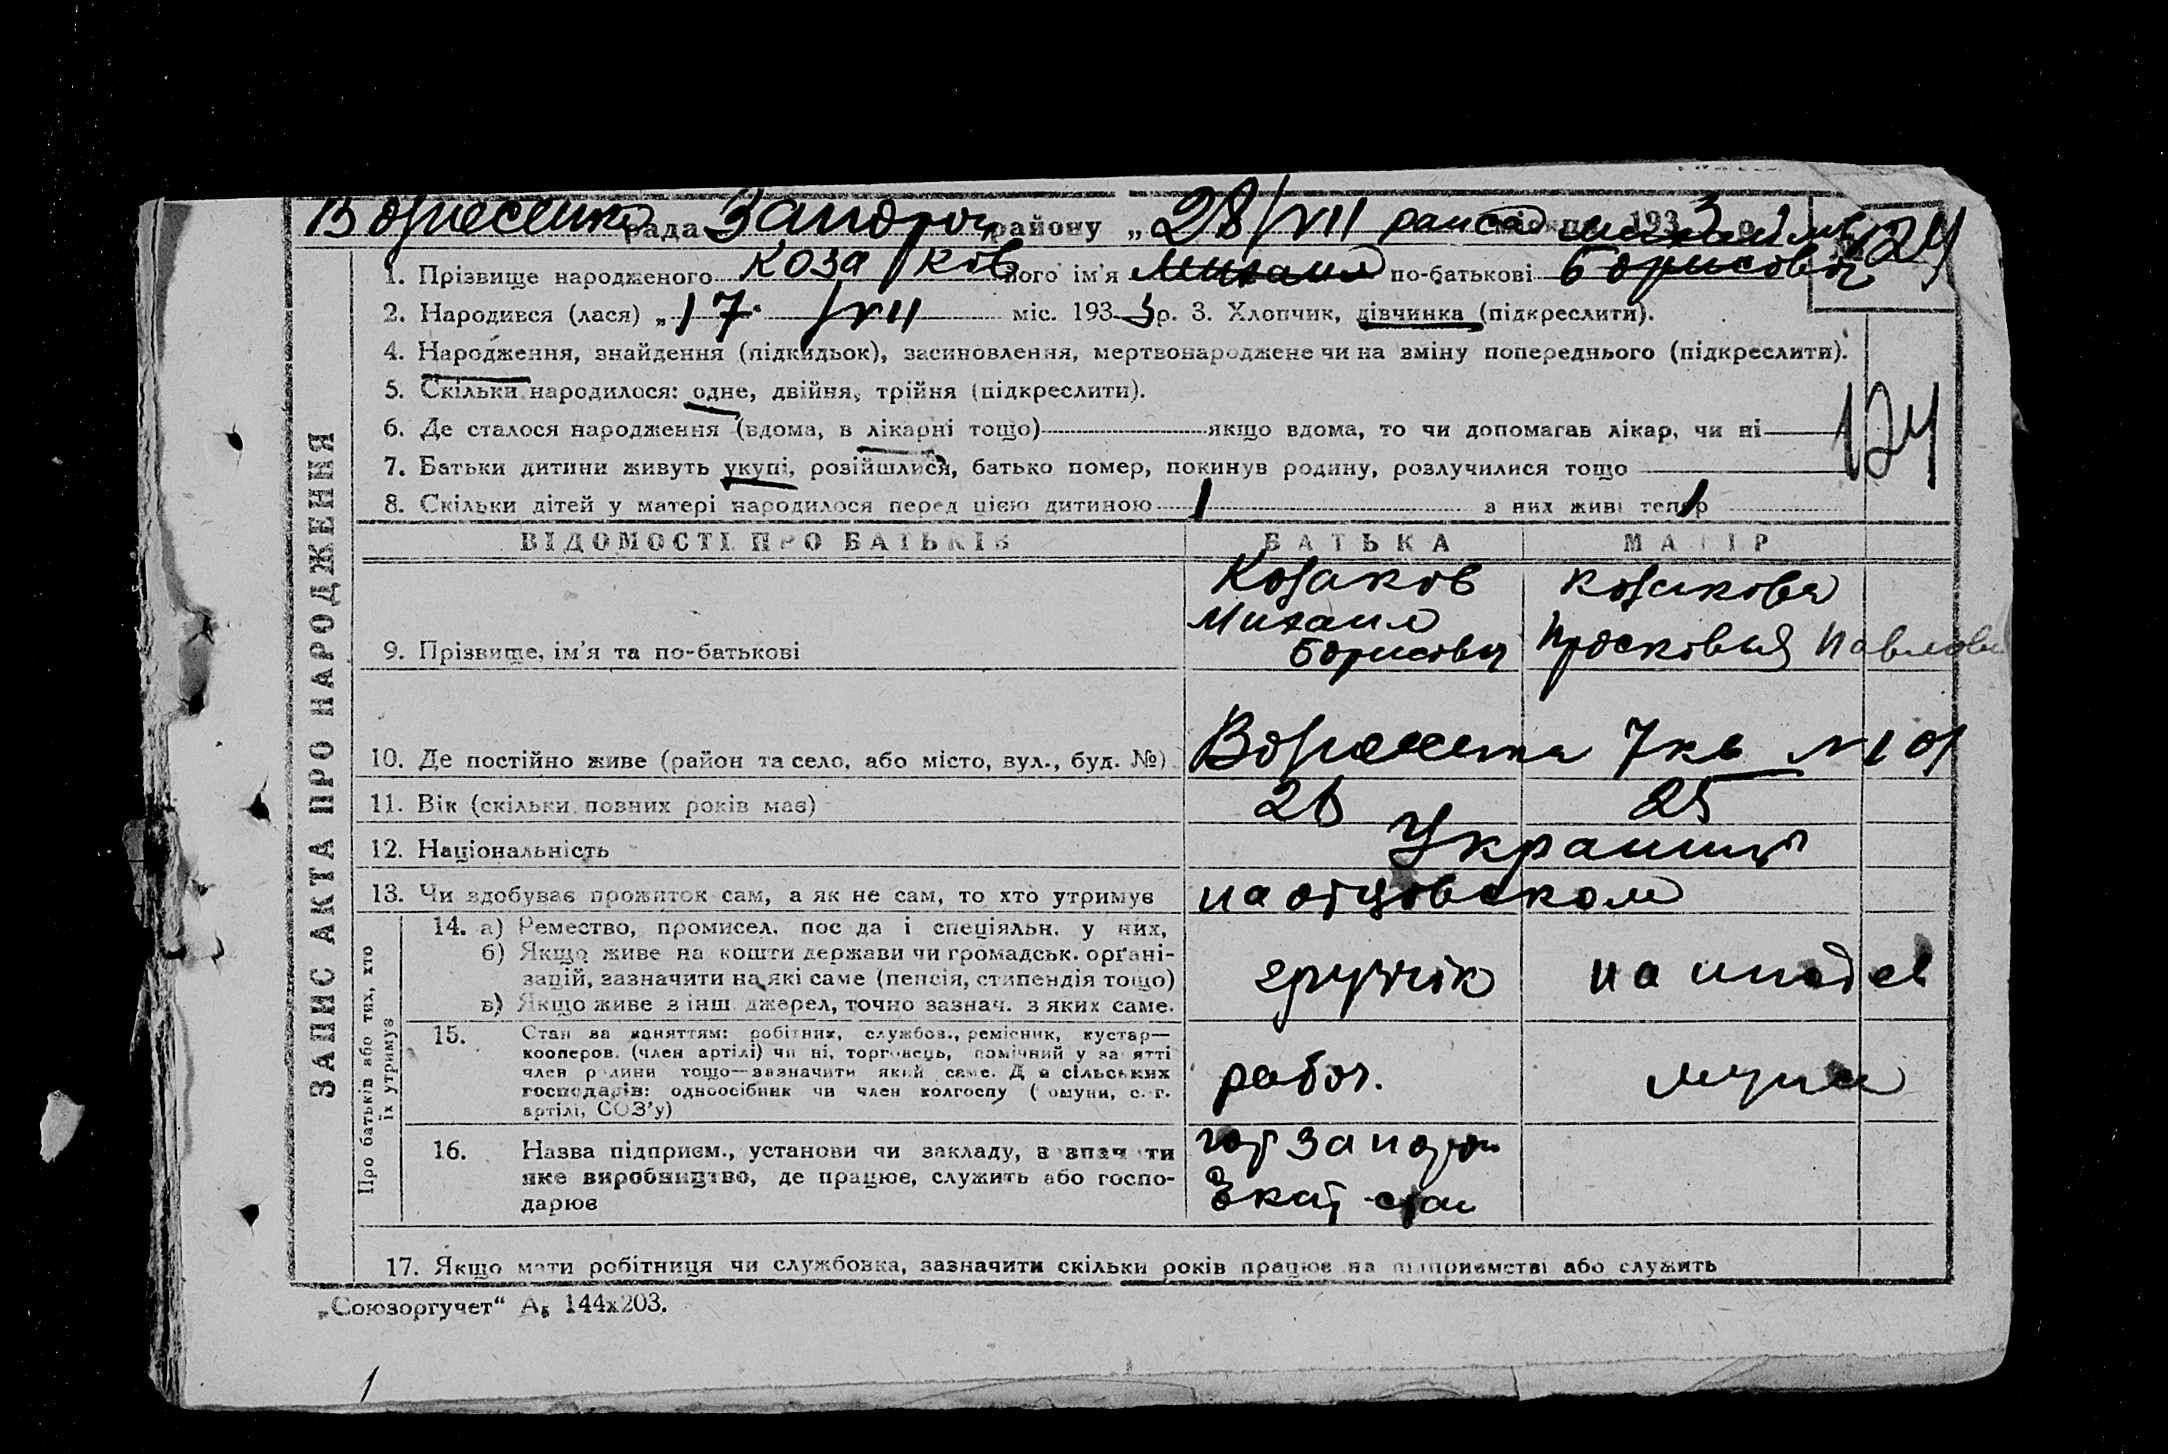 рада Запорож району „28/VII раиса міс. 193 3 р. 124
1. Прізвище народженого Коза ков його ім'я Михаил по-батькові Борисович
2. Народився (лася) „17 /VII міс. 193 3 р. 3. Хлопчик, дівчинка (підкреслити).
4. Народження, знайдення (підкидьок), засиновлення, мертвонароджене чи на зміну попереднього (підкреслити).
5. Скільки народилося: одне, двійня, трійня (підкреслити).
6. Де сталося народження (вдома, в лікарні тощо) якщо вдома, то чи допомагав лікар, чи ні
124
7. Батьки дитини живуть укупі, розійшлися, батько помер, покинув родину, розлучилися тощо
8. Скільки дітей у матері народилося перед цією дитиною 1 з них живі тепер 1
ВІДОМОСТІ ПРО БАТЬКІВ БАТЬКА МАТІР
Козаков Козакова
Михаил
9. Прізвище, ім'я та по-батькові Борисович Просковья Павлов
10. Де постійно живе (район та село, або місто, вул., буд. №) 7 кв N 101
11. Вік (скільки повних років має) 26 25
12. Національність Украинцы
13. Чи здобуває прожиток сам, а як не сам, то хто утримує на отцовском
ЗАПИС АКТА ПРО НАРОДЖЕННЯ
Про батьків або тих, хто
їх утримує
14. а) Ремество, промисел, посада і спеціяльн. у них,
б) Якщо живе на кошти держави чи громадськ. орґані-
зацій, зазначити на які саме (пенсія, стипендія тощо)
в) Якщо живе з інш. джерел, точно зазнач. з яких саме.
грузчик на иждев
15. Стан за заняттям: робітник, службов., ремісник, кустар—
кооперов. (член артілі) чи ні, торговець, помічний у занятті
член родини тощо—зазначити який саме. Для сільських
господарів: одноосібник чи член колгоспу (комуни, с.-г.
артілі, СОЗ'у)
рабоч. мужа
16. Назва підприєм., установи чи закладу, зазначити
яке виробництво, де працює, служить або госпо-
дарює
17. Якщо мати робітниця чи службовка, зазначити скільки років працює на підприємстві або служить
„Союзоргучет“ А₅ 144х203.
1